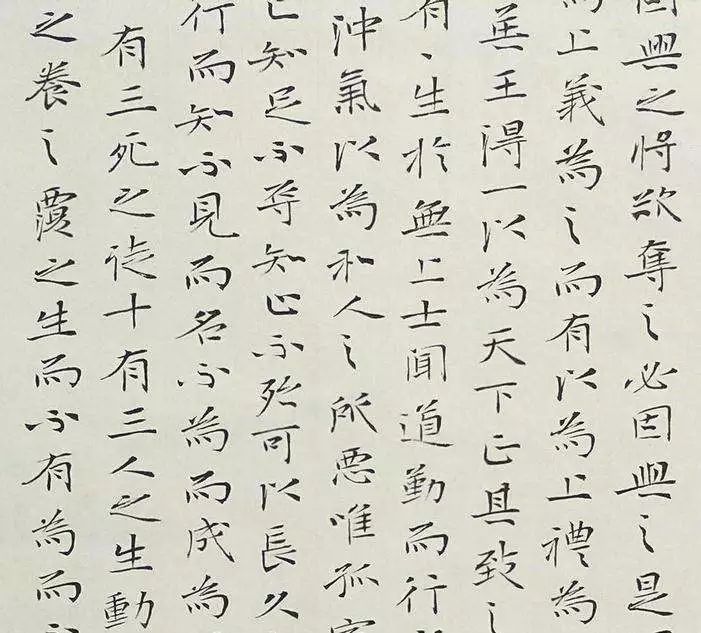 固興之將欲奪之必固與之是
為上義為之而有以為上禮為
王得一以為天下正其致之
有有生於無上士聞道勤而行
沖氣以為和人之所惡唯孤
知足不辱知止不殆可以長久
行而知不見而名不為而成為
有三死之徒十有三人之生動
之養之覆之生而不有為而